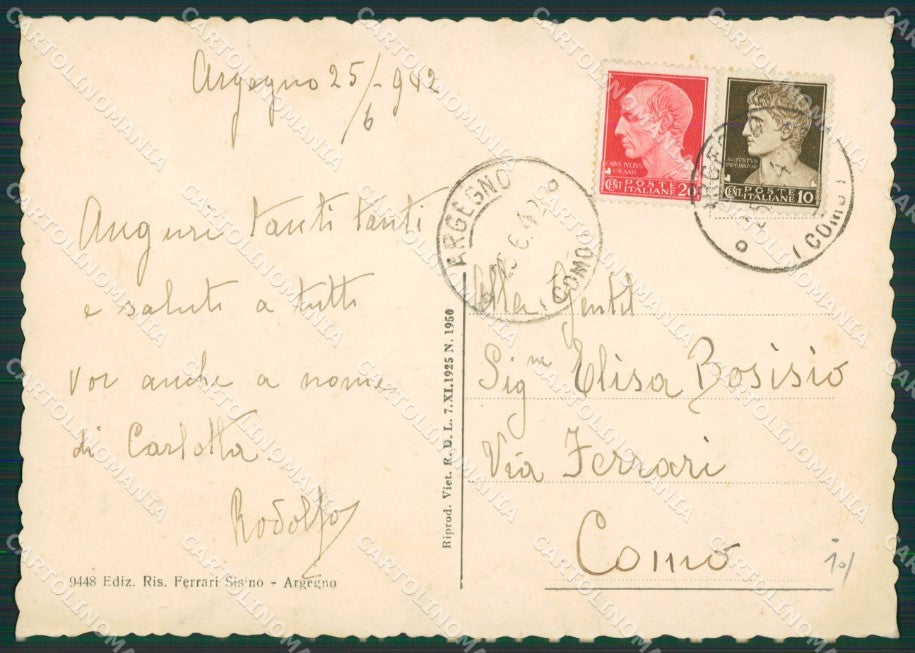 Argegno 25/6 - 942
Auguri tanti tanti
e saluti a tutti
voi anche a nome
di Carlotta
Rodolfo
9448 Ediz. Ris. Ferrari Sisino - Argegno
Riprod. Viet. R. D. L. 7.XI.1925 N. 1950
ARGEGNO
(COMO)
CAIVS IVLIVS
CAESAR
CENT POSTE ITALIANE 20
AVGVSTVS
IMPERATOR
CENT POSTE ITALIANE 10
(COMO)
Alla Gentil
Sig.na Elisa Bosisio
Via Ferrari
Como
10/
CARTOLINOMANIA